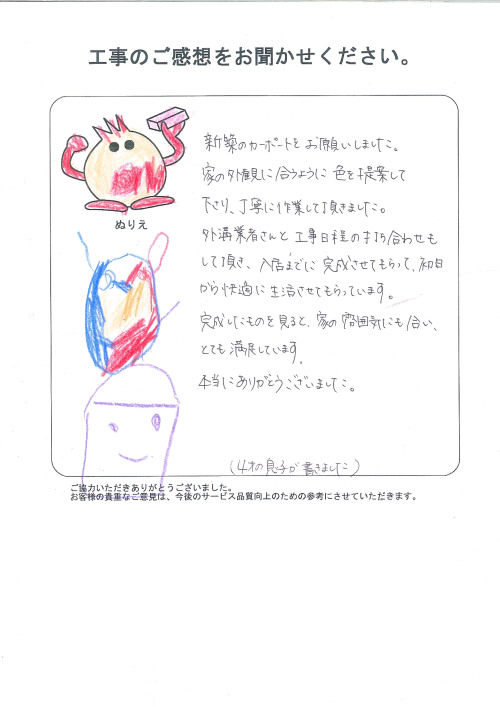 工事のご感想をお聞かせください。
ぬりえ
新築のカーポートをお願いしました。
家の外観に合うように色を提案して
下さり、丁寧に作業して頂きました。
外溝業者さんと工事日程の打ち合わせも
して頂き、入居までに完成させてもらって、初日
から快適に生活させてもらっています。
完成したものを見ると、家の雰囲気にも合い、
とても満足しています。
本当にありがとうございました。
(4才の息子が書きました)
ご協力いただきありがとうございました。
お客様の貴重なご意見は、今後のサービス品質向上のための参考にさせていただきます。